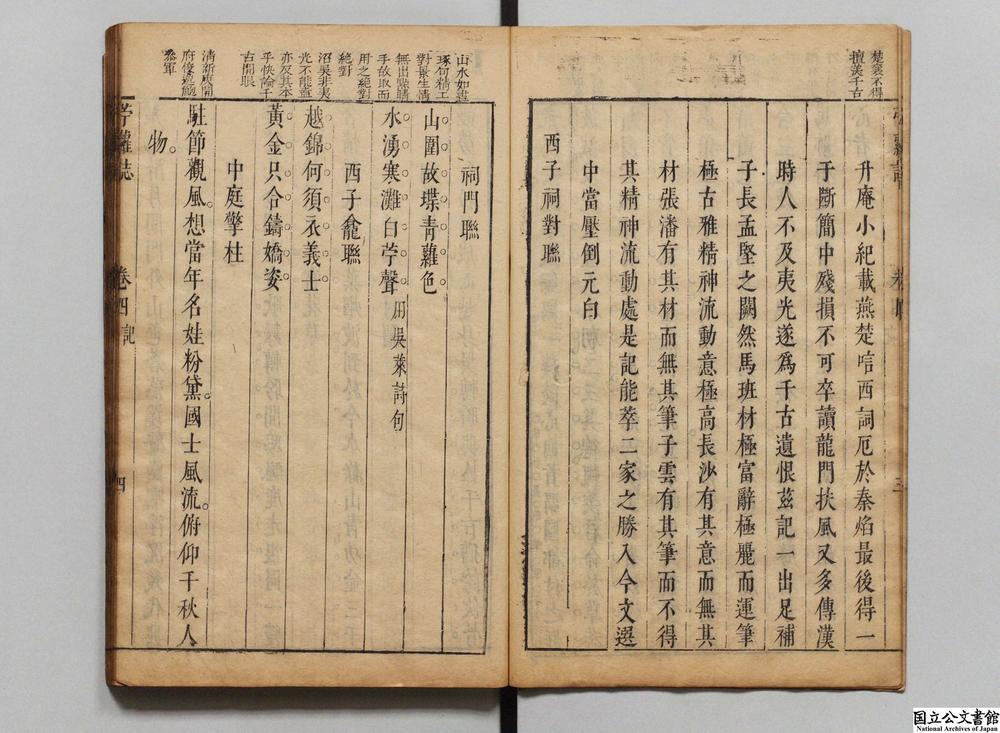 楚襄不得
擅美千古
升庵小紀載燕楚唁西詞厄於秦焰最後得一
于斷簡中殘損不可卒讀龍門扶風又多傳漢
時人不及夷光遂爲千古遺恨茲記一出足補
子長孟堅之闕然馬班材極富辭極麗而運筆
極古雅精神流動意極高長沙有其意而無其
材張潘有其材而無其筆子雲有其筆而不得
其精神流動處是記能萃二家之勝入今文選
中當壓倒元白
西子祠對聯
三
山水如畫
琢句精工
對景生情
無出點睛
手故取而
用之絕對
祠門聯
山圍故堞青蘿色
水湧寒灘白苧聲 用吳萊詩句
絕對
沼吳非美
光不能並
亦反其本
乎快論千
古開眼
西子龕聯
越錦何須衣義士
黃金只合鑄嬌姿
中庭擎柱
清新庾開
府俊逸鮑
參軍
駐節觀風想當年名姓粉黛國士風流俯仰千秋人
物
苧蘿誌 卷四 記 四
国立公文書館
National Archives of Japan